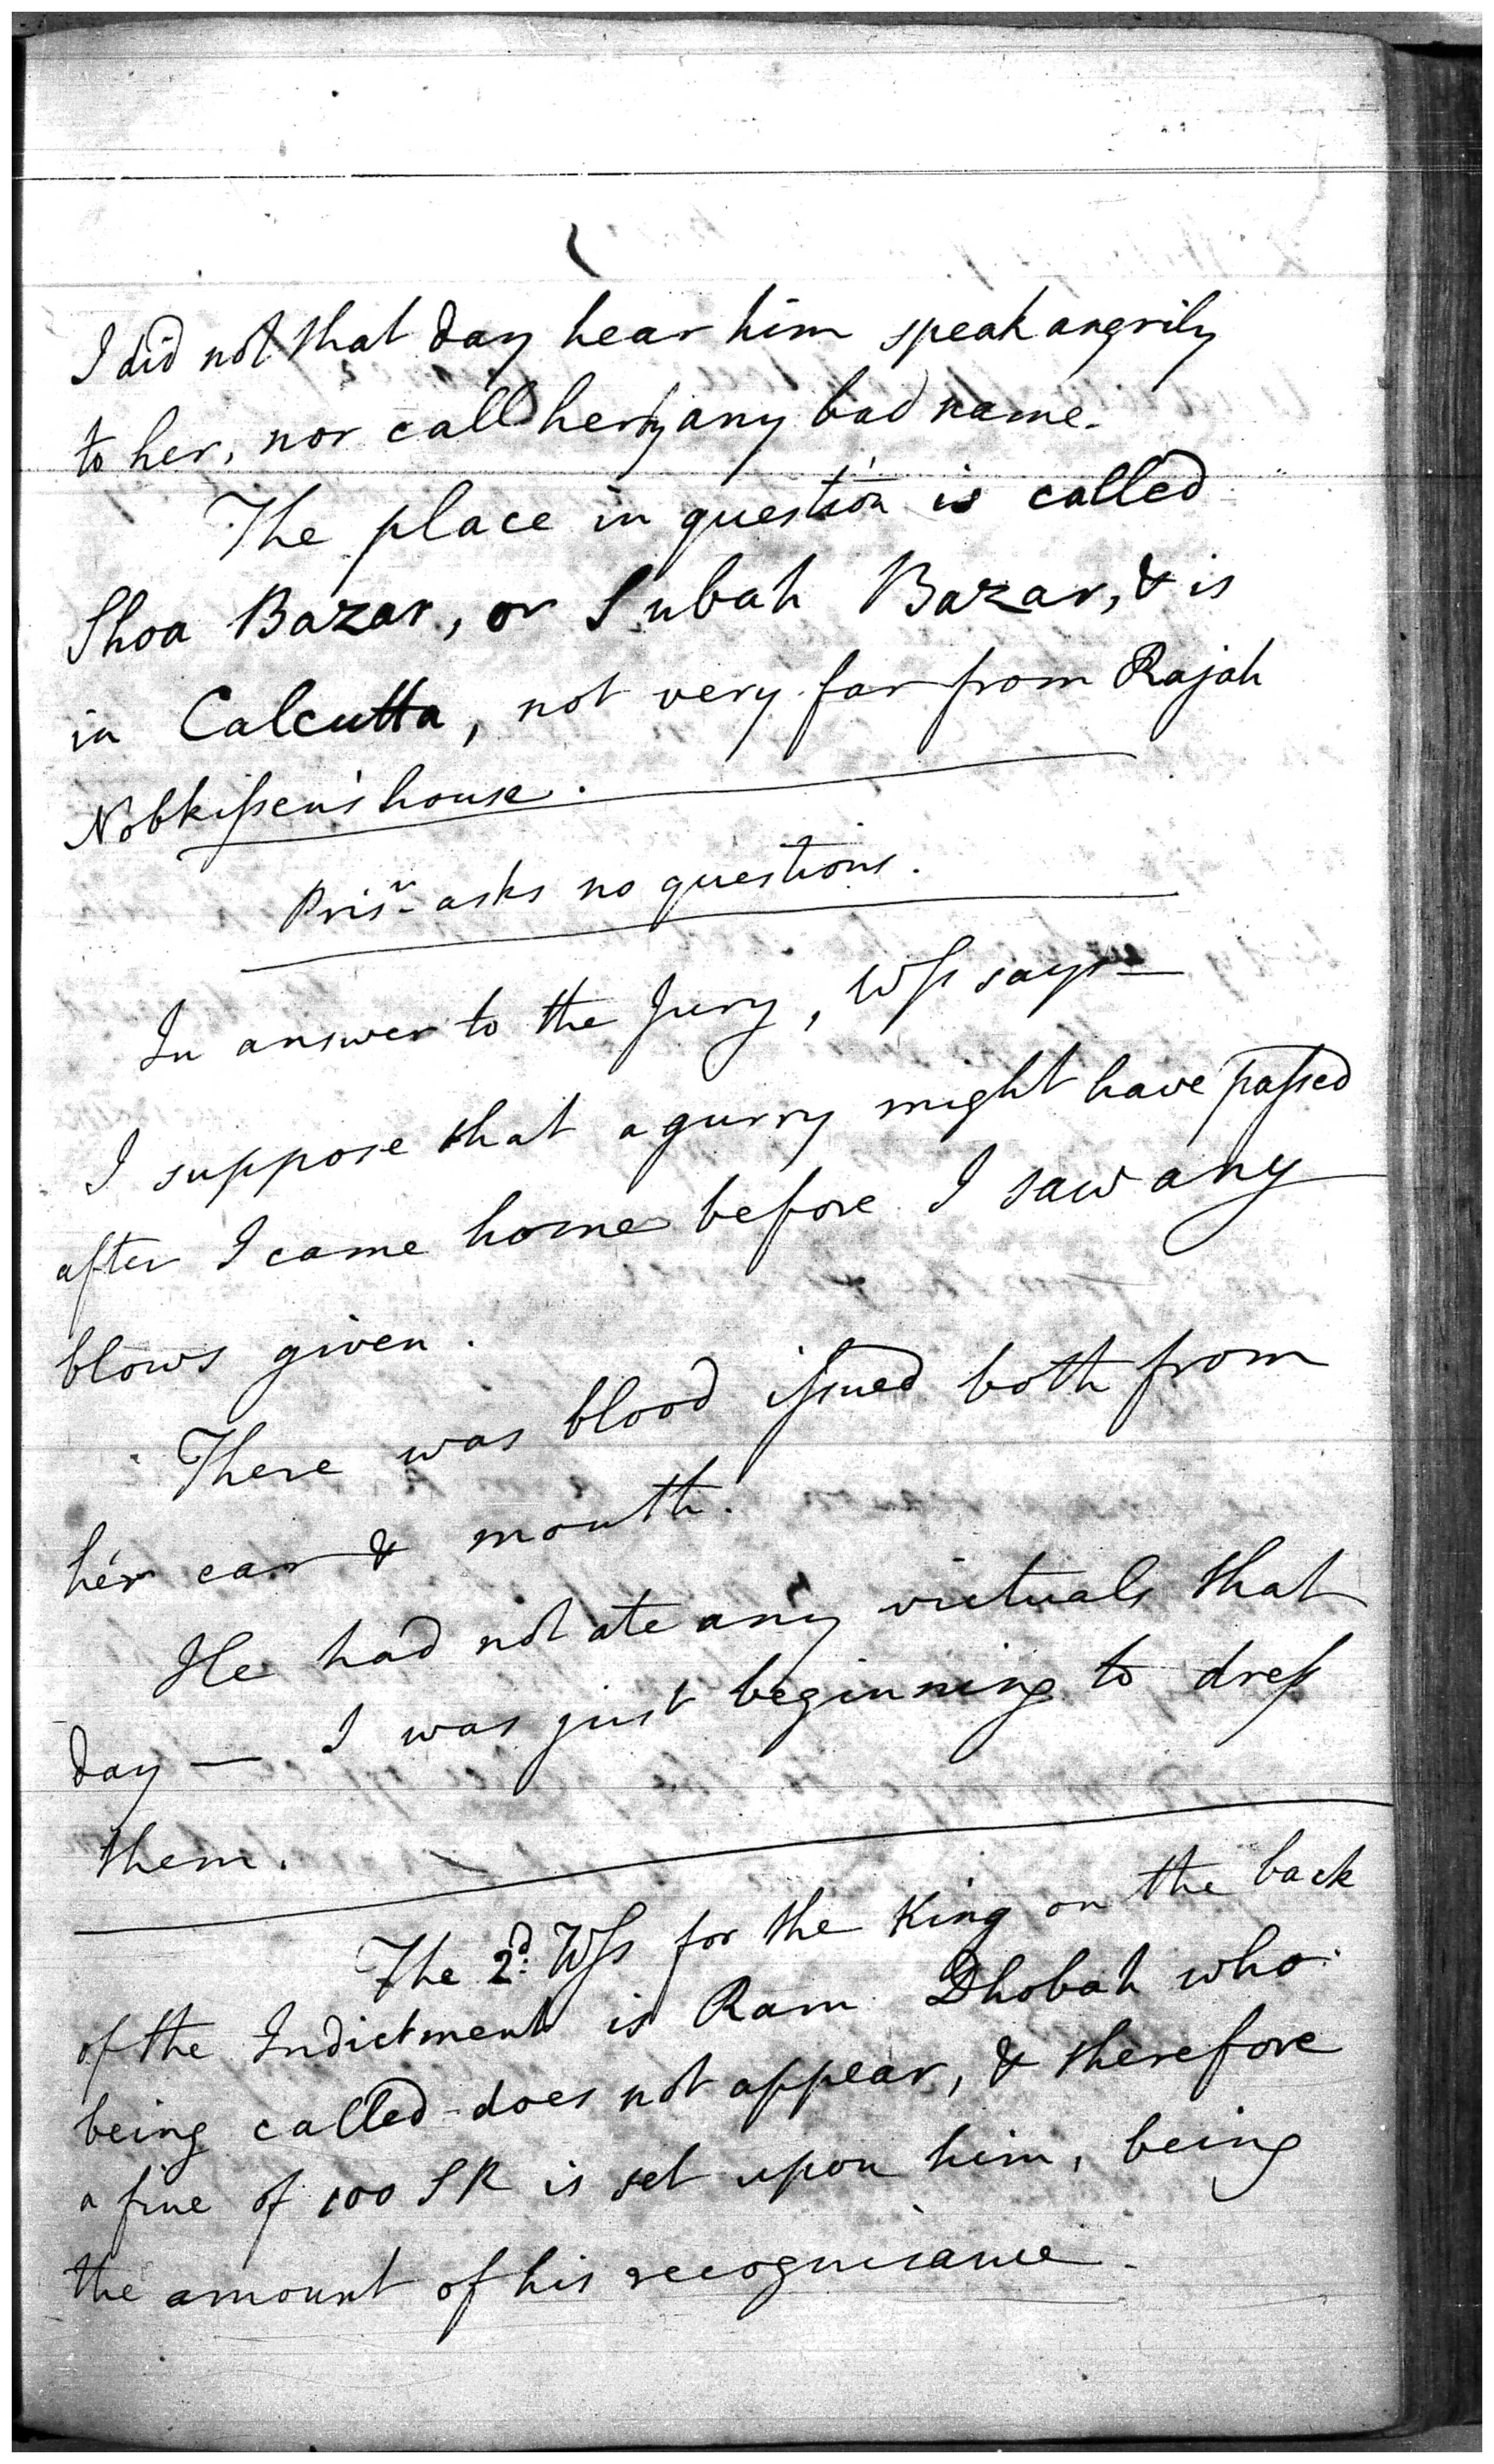 I did not that day hear him speak angrily
to her, nor call her by any bad name.
The place in question is called
Shoa Bazar, or Subah Bazar, & is
in Calcutta, not very far from Rajah
Nobkissen's house.
Prisr asks no questions.
In answer to the Jury, Wss says—
I suppose that a gurry might have passed
after I came home before I saw any
blows given.
There was blood issued both from
her ear & mouth.
He had not ate any victuals that
day — I was just beginning to dress
them.
The 2d Wss for the King on the back
of the Indictment is Ram Dhobah who
being called does not appear, & therefore
a fine of 100 SR is set upon him, being
the amount of his recognisance.